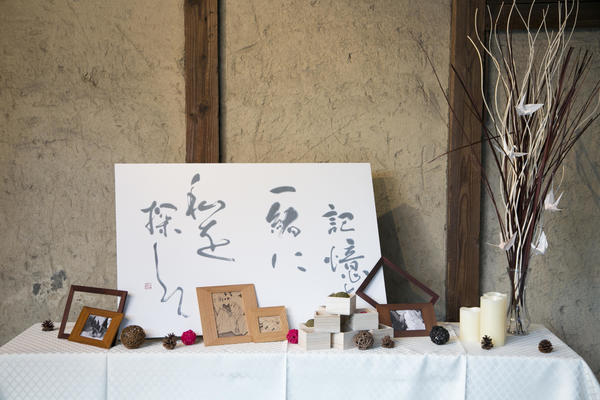 記憶
一緒に
私を
探し